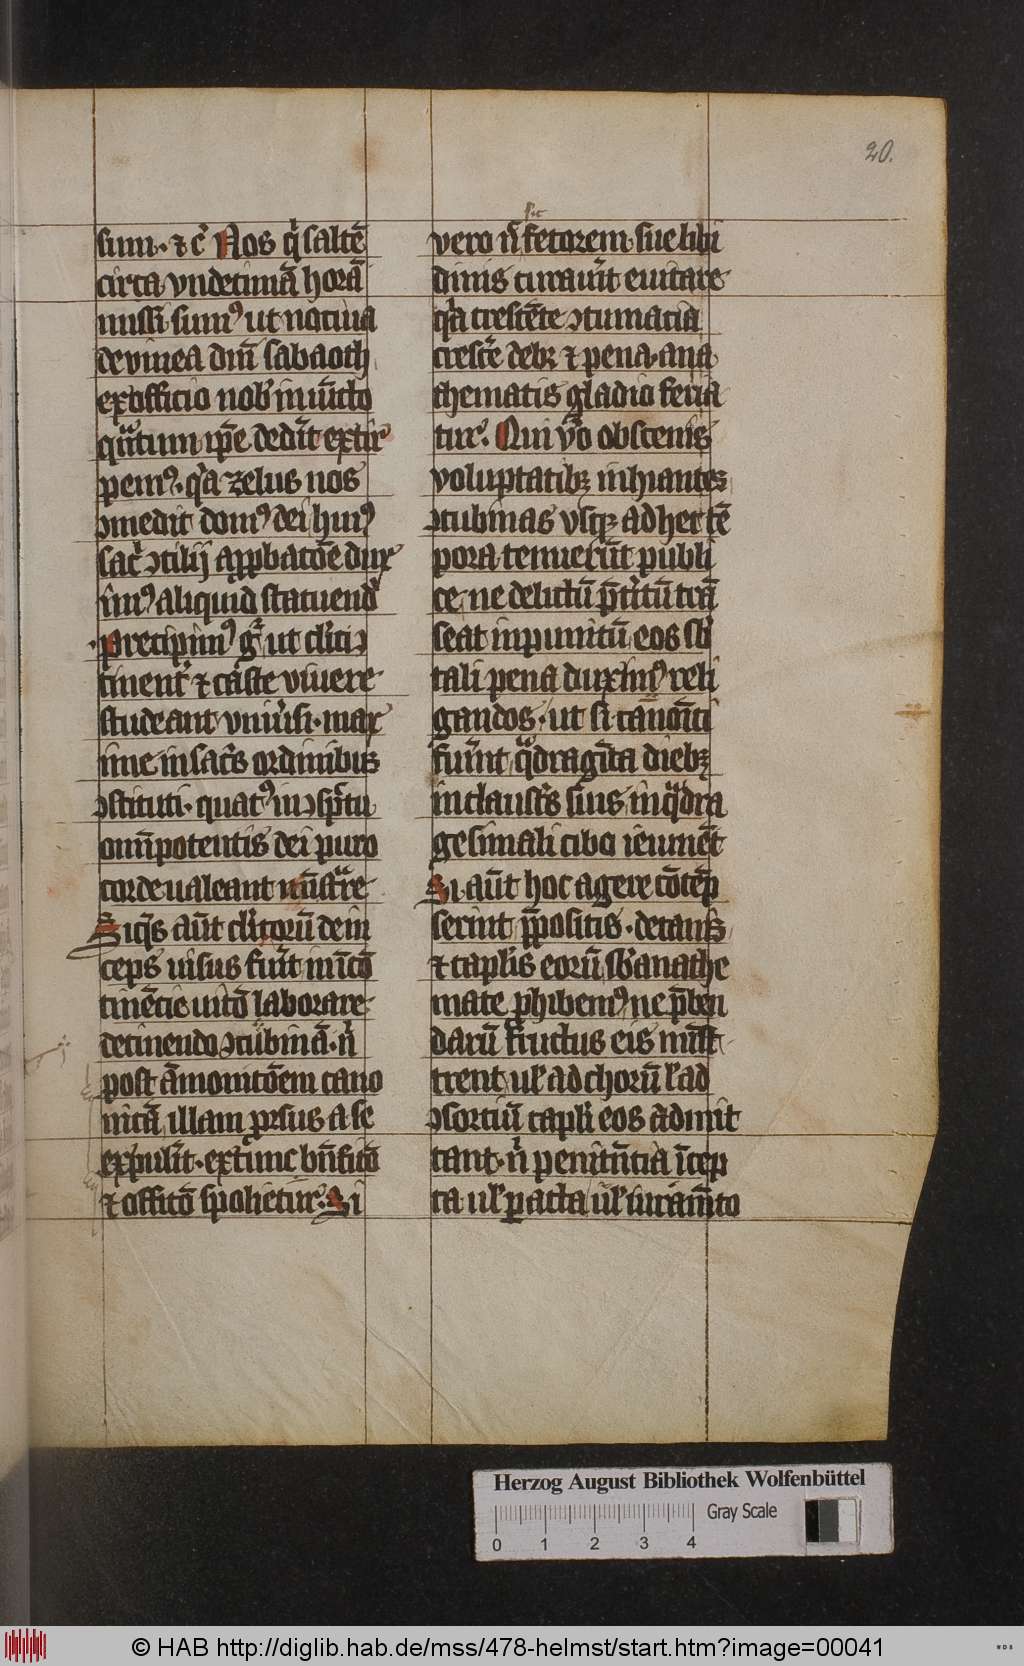 20.
sum· ⁊ cꝰ Nos q̇ saltē
circa vndecimā horā
missi sumꝰ ut nociua
de vinea dn̄i sabaoth
ex officio nob̾ iniūcto
qͣntum ip̄e dederīt extir
pemꝰ· qꝛ̇a zelus nos
ꝯmedit domꝰ dei huiꝰ
sac̾ ꝯcilij approbacōe dux
imꝰ aliquid statuend̾
Precipimꝰ gͦ ut cl̾ici ꝯ
tinent̾ ⁊ caste viuere
studeant vniu̾si· max
ime in sac̾s ordinibus
ꝯstituti· quatꝰ in ꝯsp̄ctu
omīpotentis dei puro
corde ualeant mīstͣre
Siqͥs aūt cl̾icorū dein
ceps uisus fūit inꝯtō
tinēcie uicō laborare
detinendo ꝯcubinā· ṅ
post āmonicōem cano
nicā illam prsus a se
expulit̄· extunc bn̄ficō
⁊ officō spolietur̾ Si
sic
vero ṅ fetorem sue libi
dinis curauīt euitare
qꝛ̇a crescēte ꝯtumacia
cresc̄e debꝫ ⁊ pena· ana
thematis gladio feria
tur̾. Qui v̾o obscenis
voluptatibꝫ inhiantes
ꝯcubinas vsqꝫ ad hec tē
pora tenuerūt publi
ce, ne delictū p̄t̾itū trā
seat inpunitū eos sb̾
tali pena duximꝰ reli
gandos· ut si canōici
fuīnt qͣdragīta diebꝫ
in claust̾s suis in qͣdra
gesimali cibo ieiunēt
Si aūt hoc agere cōtēp
serint p̄positis· decanis
⁊ cap̄lis eorū sb̾ anathe
mate phibemꝰ ne p̄ben
darū fructus eis mīst
trent ul̾ ad chorū l̾ ad
ꝯsorciū cap̄li eos admit
tant· ṅ penitn̄cia īcep
ta ul̾ pacta ul̾ iuram̄to
Herzog August Bibliothek Wolfenbüttel
Gray Scale
0 1 2 3 4
© HAB http://diglib.hab.de/mss/478-helmst/start.htm?image=00041